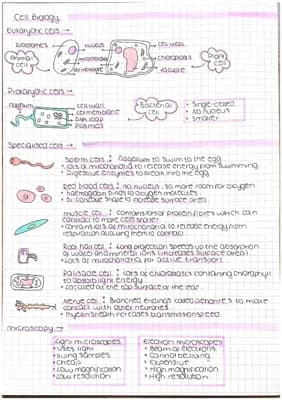 Cell Biology
Eukaryotic cells →
ribosomes
nucleus
cell wall
Animal cell
mitochondria
chloroplasts
Plant cell
membrane
vacuole
Prokaryotic cells →
flagellum
cell wall
cell membrane
DNA loop
plasmids
Bacterial cell
• Single-celled
• No nucleus
• smaller
Specialised cells →
Sperm cells: flagellum to swim to the egg
• lots of mitochondria to release energy from swimming
• Digestive enzymes to break into the egg
Red blood cells: no nucleus, so more room for oxygen
• haemoglobin binds to oxygen molecules
• bi-concave shape to increase surface area
muscle cell: contains lots of protein fibres which can
contract to make cell shorter
• contains lots of mitochondria to release energy from
respiration allowing them to contract
Root hair cell: Long projection speeds up the absorption
of water and mineral ions (increases surface area)
• lots of mitochondria for active transport
Palisade cell: lots of chloroplasts containing chlorophyll
to absorb light energy
• Located at the top surface of the leaf
Nerve cell: Branched endings called dendrites to make
contact with other neurones
• myelin sheath increases transmission speed
microscopy →
Light microscopes
• Uses light
• living samples
• Cheap
• Low magnification
• Low resolution
Electron microscopes
• Beam of electrons
• Cannot be living
• Expensive
• High magnification
• High resolution